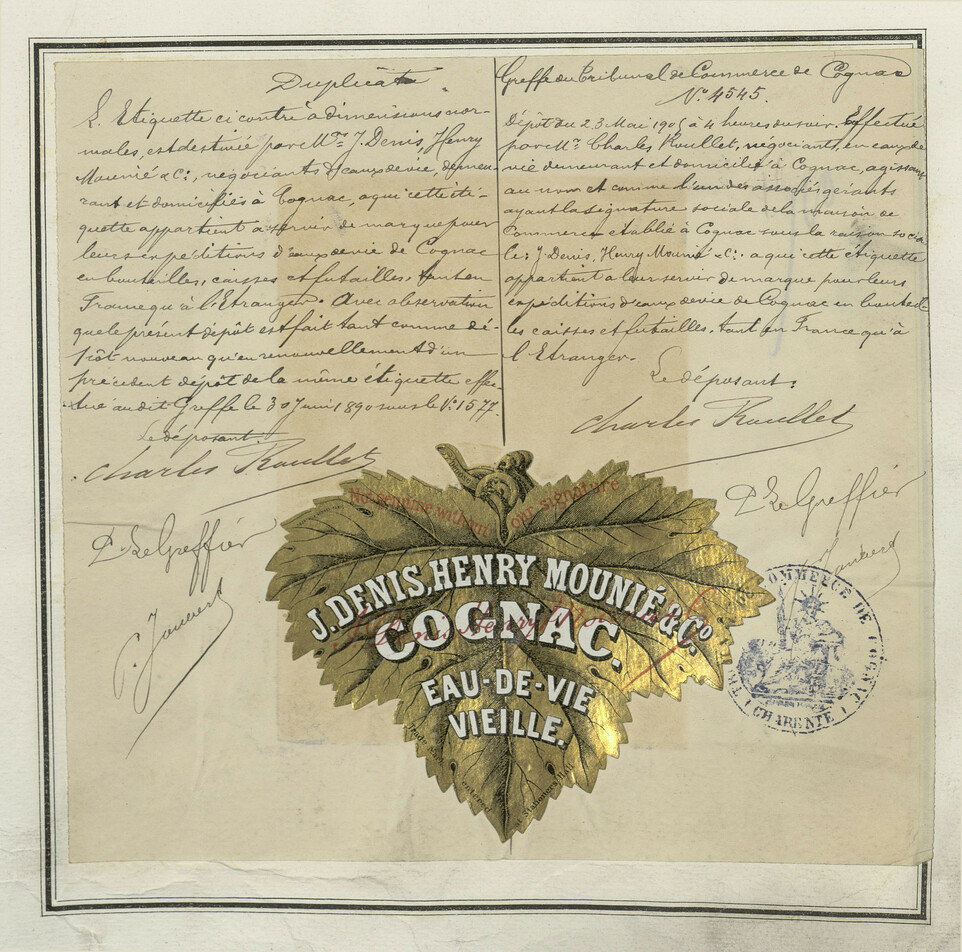 Duplicata
L'Etiquette ci contre à dimensions nor-
males, est destinée par Mrs J. Denis, Henry
Mounié & Cie, négociants d'eaux de vie, demeu-
rant et domiciliés à Cognac, a qui cette éti-
quette appartient a servir de marque pour
leurs expéditions d'eaux de vie de Cognac
en bouteilles, caisses et futailles, tant en
France qu'à l'Etranger. Avec observation
que le présent dépôt est fait tant comme dé-
pôt nouveau qu'en renouvellement d'un
précédent dépôt de la même étiquette effec-
tué au dit Greffe le 30 Juin 1890 sous le No 1577.
Le déposant.
Charles Roullet
P. Le Greffier
Greffe du Tribunal de Commerce de Cognac
No 4545.
Dépôt du 23 Mai 1905 à 4 heures du soir. Effectué
par Mr Charles Roullet, négociant, en eaux de
vie demeurant et domicilié à Cognac, agissant
au nom et comme l'un des associés gérants
ayant la signature sociale de la maison de
Commerce établie à Cognac sous la raison socia
le: J. Denis, Henry Mounié & Cie. a qui cette étiquette
appartient a leur servir de marque pour leurs
expéditions d'eaux de vie de Cognac en bouteil
les caisses et futailles, tant en France qu'à
l'Etranger.
Le déposant.
Charles Roullet
P. Le Greffier
Not genuine without our signature
J. DENIS, HENRY MOUNIÉ & Co
COGNAC.
EAU-DE-VIE
VIEILLE.
entered at Stationers Hall
COMMERCE DE COGNAC
CHARENTE